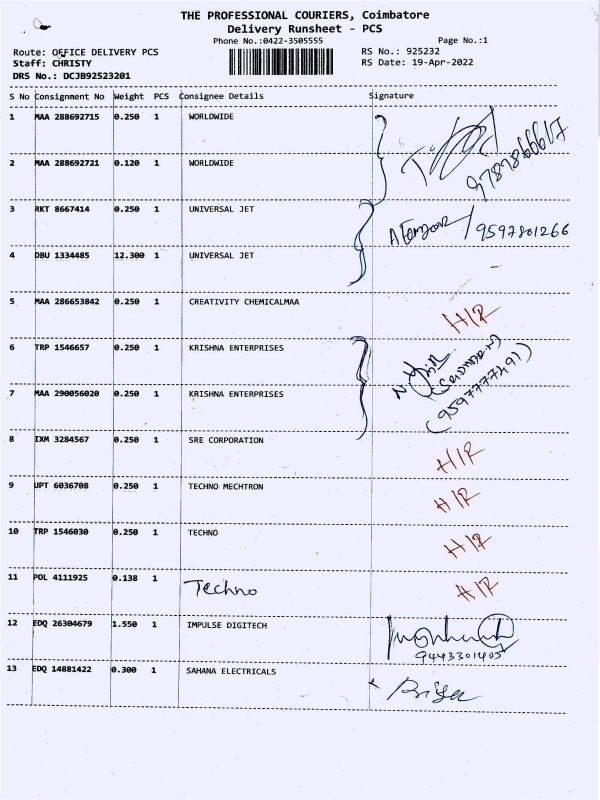 THE PROFESSIONAL COURIERS, Coimbatore
Delivery Runsheet - PCS
Phone No.:0422-3505555 Page No.:1
Route: OFFICE DELIVERY PCS RS No.: 925232
Staff: CHRISTY RS Date: 19-Apr-2022
DRS No.: DCJB92523201
S No Consignment No Weight PCS Consignee Details Signature
1 MAA 288692715 0.250 1 WORLDWIDE
9787866617
2 MAA 288692721 0.120 1 WORLDWIDE
3 RKT 8667414 0.250 1 UNIVERSAL JET
9597801266
4 DBU 1334485 12.300 1 UNIVERSAL JET
5 MAA 286653842 0.250 1 CREATIVITY CHEMICALMAA H/R
6 TRP 1546657 0.250 1 KRISHNA ENTERPRISES
7 MAA 290056020 0.250 1 KRISHNA ENTERPRISES
8 IXM 3284567 0.250 1 SRE CORPORATION H/R
9 UPT 6036708 0.250 1 TECHNO MECHTRON H/R
10 TRP 1546030 0.250 1 TECHNO H/R
11 POL 4111925 0.138 1 Techno H/R
12 EDQ 26304679 1.550 1 IMPULSE DIGITECH
9443301405
13 EDQ 14881422 0.300 1 SAHANA ELECTRICALS Priya